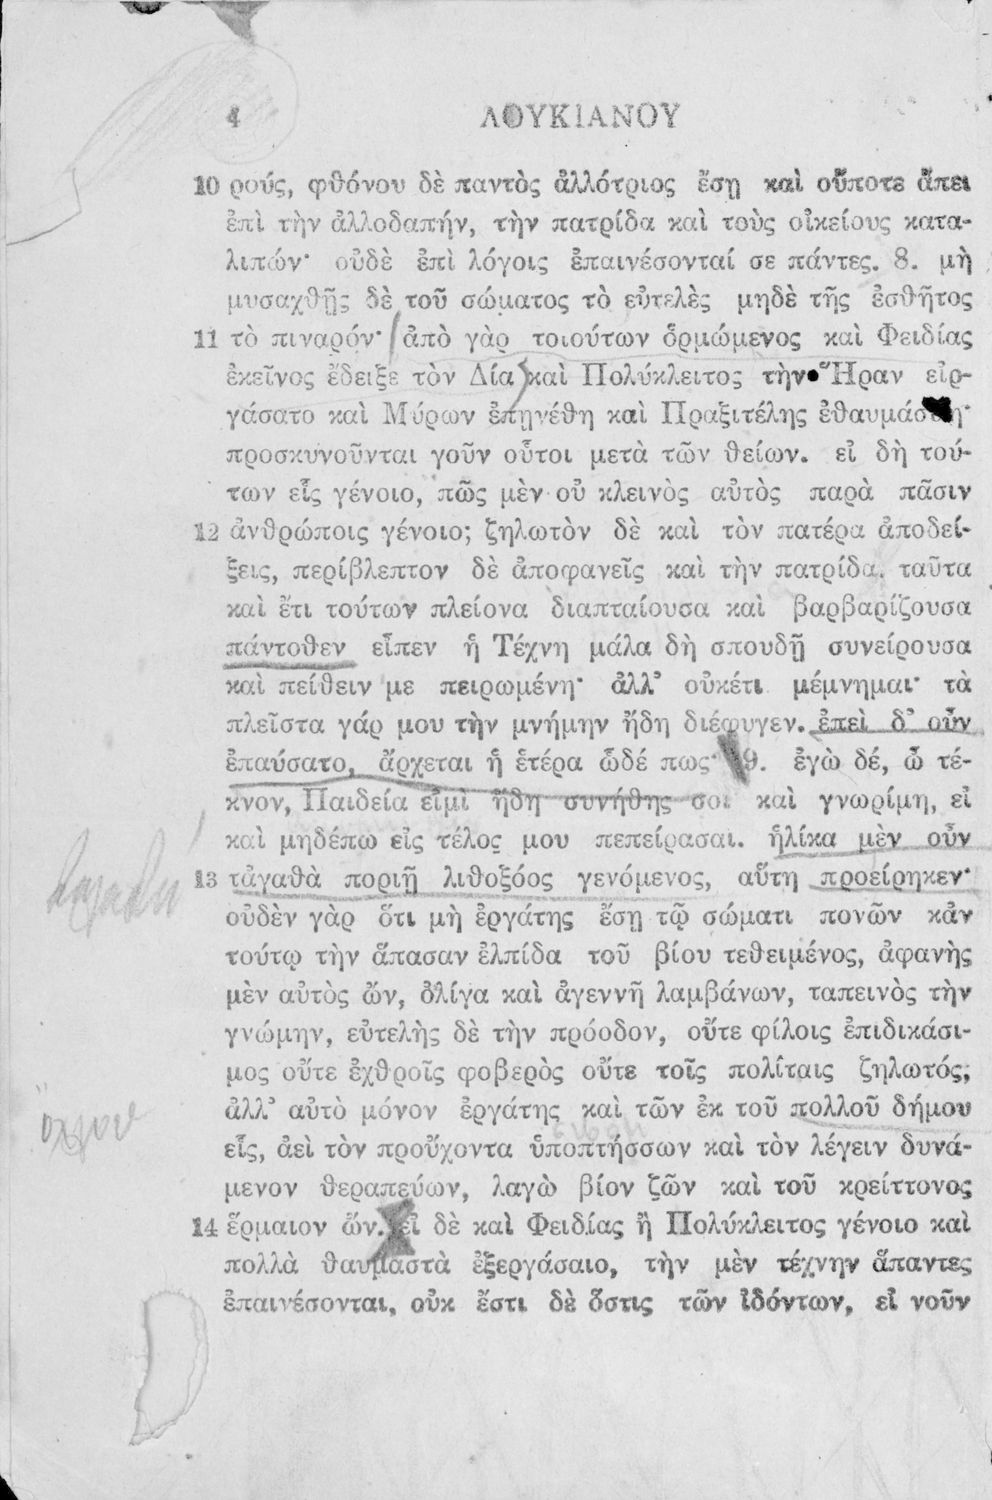 4 ΛΟΥΚΙΑΝΟΥ
10 ρούς, φθόνου δὲ παντὸς ἀλλότριος ἔσῃ καὶ οὔποτε ἄπει
ἐπὶ τὴν ἀλλοδαπήν, τὴν πατρίδα καὶ τοὺς οἰκείους κατα-
λιπών· οὐδὲ ἐπὶ λόγοις ἐπαινέσονταί σε πάντες. 8. μὴ
μυσαχθῇς δὲ τοῦ σώματος τὸ εὐτελὲς μηδὲ τῆς ἐσθῆτος
11 τὸ πιναρόν· ἀπὸ γὰρ τοιούτων ὁρμώμενος καὶ Φειδίας
ἐκεῖνος ἔδειξε τὸν Δία καὶ Πολύκλειτος τὴν Ἥραν εἰρ-
γάσατο καὶ Μύρων ἐπῃνέθη καὶ Πραξιτέλης ἐθαυμάσθη·
προσκυνοῦνται γοῦν οὗτοι μετὰ τῶν θείων. εἰ δὴ τού-
των εἷς γένοιο, πῶς μὲν οὐ κλεινὸς αὐτὸς παρὰ πᾶσιν
12 ἀνθρώποις γένοιο; ζηλωτὸν δὲ καὶ τὸν πατέρα ἀποδεί-
ξεις, περίβλεπτον δὲ ἀποφανεῖς καὶ τὴν πατρίδα. ταῦτα
καὶ ἔτι τούτων πλείονα διαπταίουσα καὶ βαρβαρίζουσα
πάντοθεν εἶπεν ἡ Τέχνη μάλα δὴ σπουδῇ συνείρουσα
καὶ πείθειν με πειρωμένη· ἀλλ’ οὐκέτι μέμνημαι· τὰ
πλεῖστα γάρ μου τὴν μνήμην ἤδη διέφυγεν. ἐπεὶ δ’ οὖν
ἐπαύσατο, ἄρχεται ἡ ἑτέρα ὧδέ πως· 9. ἐγὼ δέ, ὦ τέ-
κνον, Παιδεία εἰμὶ ἤδη συνήθης σοι καὶ γνωρίμη, εἰ
καὶ μηδέπω εἰς τέλος μου πεπείρασαι. ἡλίκα μὲν οὖν
13 τἀγαθὰ ποριῇ λιθοξόος γενόμενος, αὕτη προείρηκεν·
οὐδὲν γὰρ ὅτι μὴ ἐργάτης ἔσῃ τῷ σώματι πονῶν κἀν
τούτῳ τὴν ἅπασαν ἐλπίδα τοῦ βίου τεθειμένος, ἀφανὴς
μὲν αὐτὸς ὤν, ὀλίγα καὶ ἀγεννῆ λαμβάνων, ταπεινὸς τὴν
γνώμην, εὐτελὴς δὲ τὴν πρόοδον, οὔτε φίλοις ἐπιδικάσι-
μος οὔτε ἐχθροῖς φοβερὸς οὔτε τοῖς πολίταις ζηλωτός,
ἀλλ’ αὐτὸ μόνον ἐργάτης καὶ τῶν ἐκ τοῦ πολλοῦ δήμου
εἷς, ἀεὶ τὸν προὔχοντα ὑποπτήσσων καὶ τὸν λέγειν δυνά-
μενον θεραπεύων, λαγὼ βίον ζῶν καὶ τοῦ κρείττονος
14 ἕρμαιον ὤν. εἰ δὲ καὶ Φειδίας ἢ Πολύκλειτος γένοιο καὶ
πολλὰ θαυμαστὰ ἐξεργάσαιο, τὴν μὲν τέχνην ἅπαντες
ἐπαινέσονται, οὐκ ἔστι δὲ ὅστις τῶν ἰδόντων, εἰ νοῦν